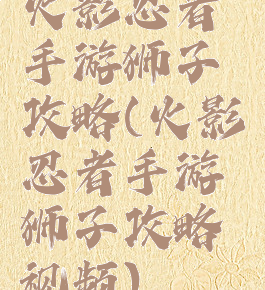 火影忍者
手游狮子
攻略(火影
忍者手游
狮子攻略
视频)